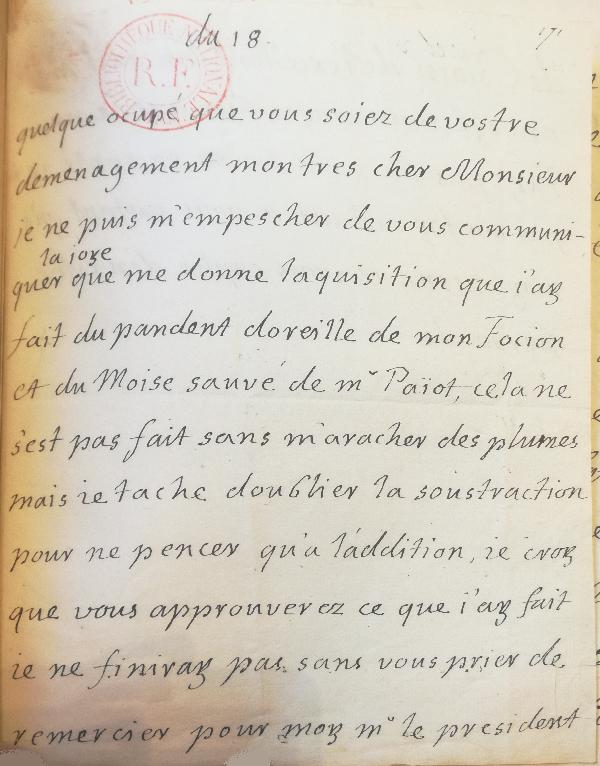 du 18
BIBLIOTHEQUE NATIONALE
R.F.
quelque ocupé que vous soiez de vostre
demenagement mon tres cher Monsieur
je ne puis m'empescher de vous communi-
la ioye
quer que me donne laquisition que i'ay
fait du pandent doreille de mon Focion
et du Moise sauvé de mr Païot, cela ne
s'est pas fait sans m'aracher des plumes
mais ie tache doublier la soustraction
pour ne pencer qu'a l'addition, ie croy
que vous approuverez ce que i'ay fait
ie ne finiray pas sans vous prier de
remercier pour moy mr le president